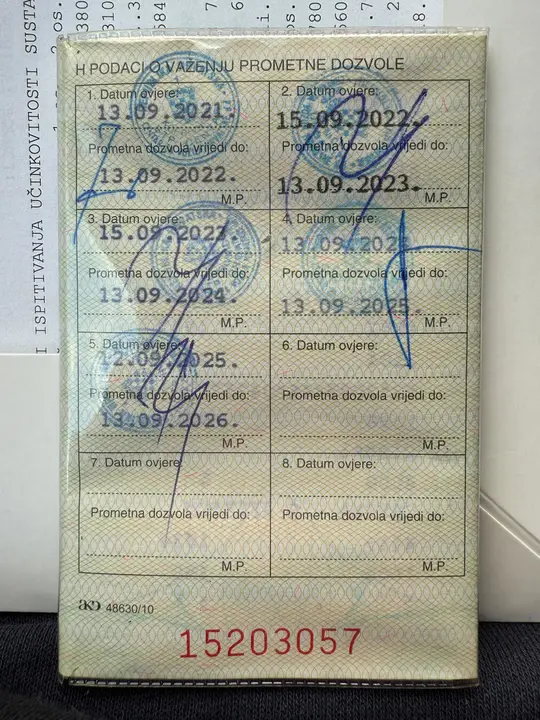 I ISPITIVANJA UČINKOVITOSTI SUSTA
H PODACI O VAŽENJU PROMETNE DOZVOLE
1. Datum ovjere:
13.09.2021.
Prometna dozvola vrijedi do:
13.09.2022.
M.P.
2. Datum ovjere:
15.09.2022.
Prometna dozvola vrijedi do:
13.09.2023.
M.P.
3. Datum ovjere:
15.09.2023
Prometna dozvola vrijedi do:
13.09.2024.
M.P.
4. Datum ovjere:
13.09.202
Prometna dozvola vrijedi do:
13.09.2025.
M.P.
5. Datum ovjere:
12.09.2025.
Prometna dozvola vrijedi do:
13.09.2026.
M.P.
6. Datum ovjere:
Prometna dozvola vrijedi do:
M.P.
7. Datum ovjere:
Prometna dozvola vrijedi do:
M.P.
8. Datum ovjere:
Prometna dozvola vrijedi do:
M.P.
akd 48630/10
15203057